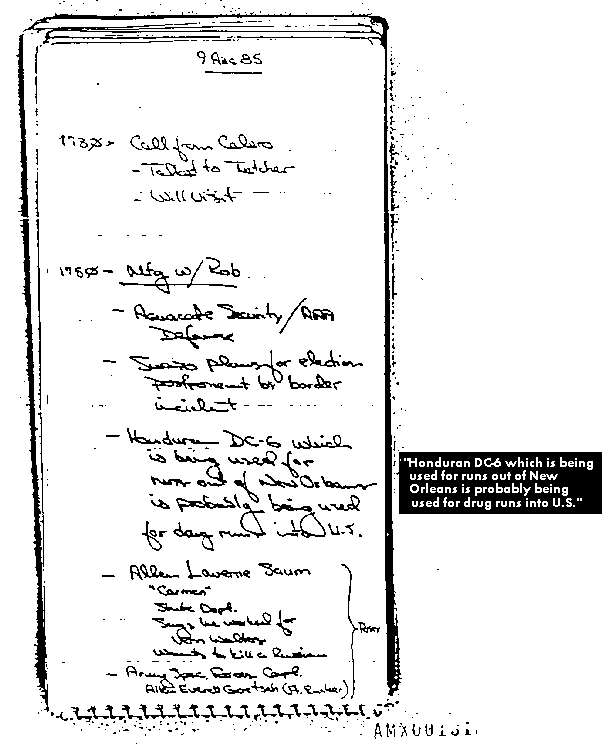 9 Aug 85
1730 - Call from Calero
- Talked to
- Will visit
1750 - Mtg w/ Rob
- Security /
Defense
- plans for election
postponement by border
incident
- Honduran DC-6 which
is being used for
runs out of New Orleans
is probably being used
for drug runs into U.S.
- Allen Laverne Saum
"Carmen"
State Dept.
Says he worked for
Vern Walters
Wants to kill a Russian
- Army Spec Forces Capt.
"Honduran DC-6 which is being
used for runs out of New
Orleans is probably being
used for drug runs into U.S."